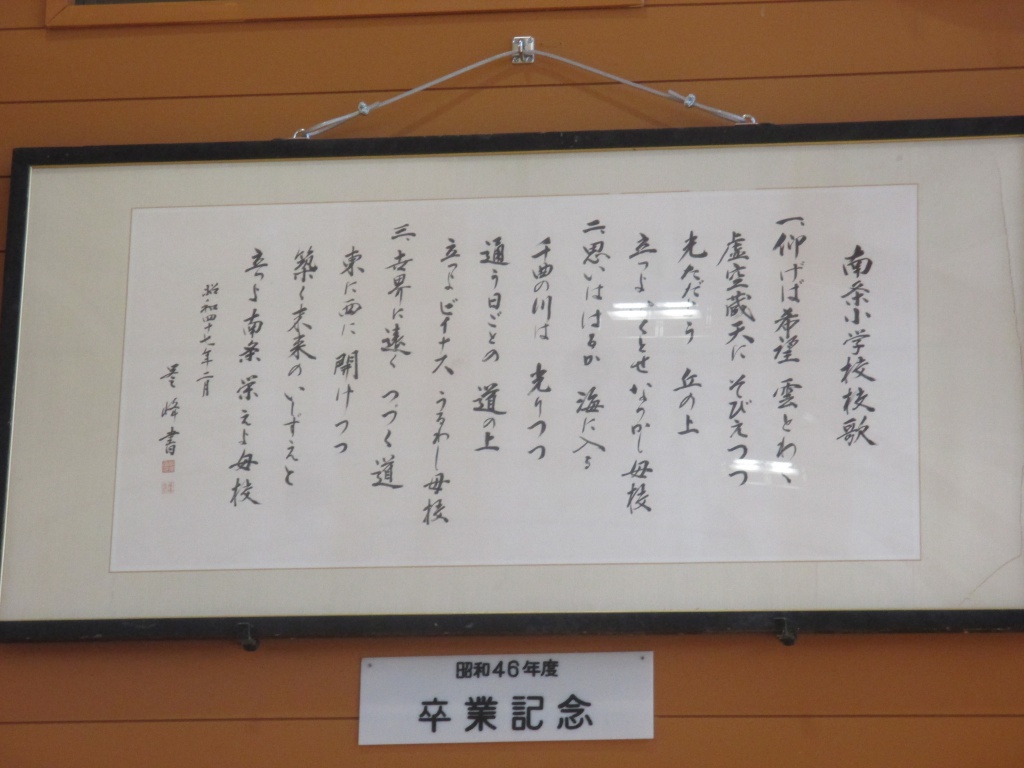 南条小学校校歌
一、仰げば希望 雲とわく
虚空蔵天に そびえつつ
光ただよう 丘の上
立つよ いくとせ なつかし母校
二、思いははるか 海に入る
千曲の川は 光りつつ
通う日ごとの 道の上
立つよ ビイナス うるわし母校
三、世界に遠く つづく道
東に西に 開けつつ
築く未来の いしずえと
立つよ南条 栄えよ母校
昭和四十七年二月
峰書
昭和46年度
卒業記念